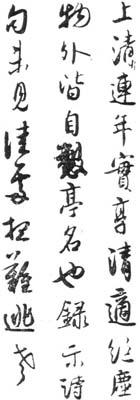 上清連年實享清適紅塵
物外皆自製亭名也錄示詩
句未見佳處難逃